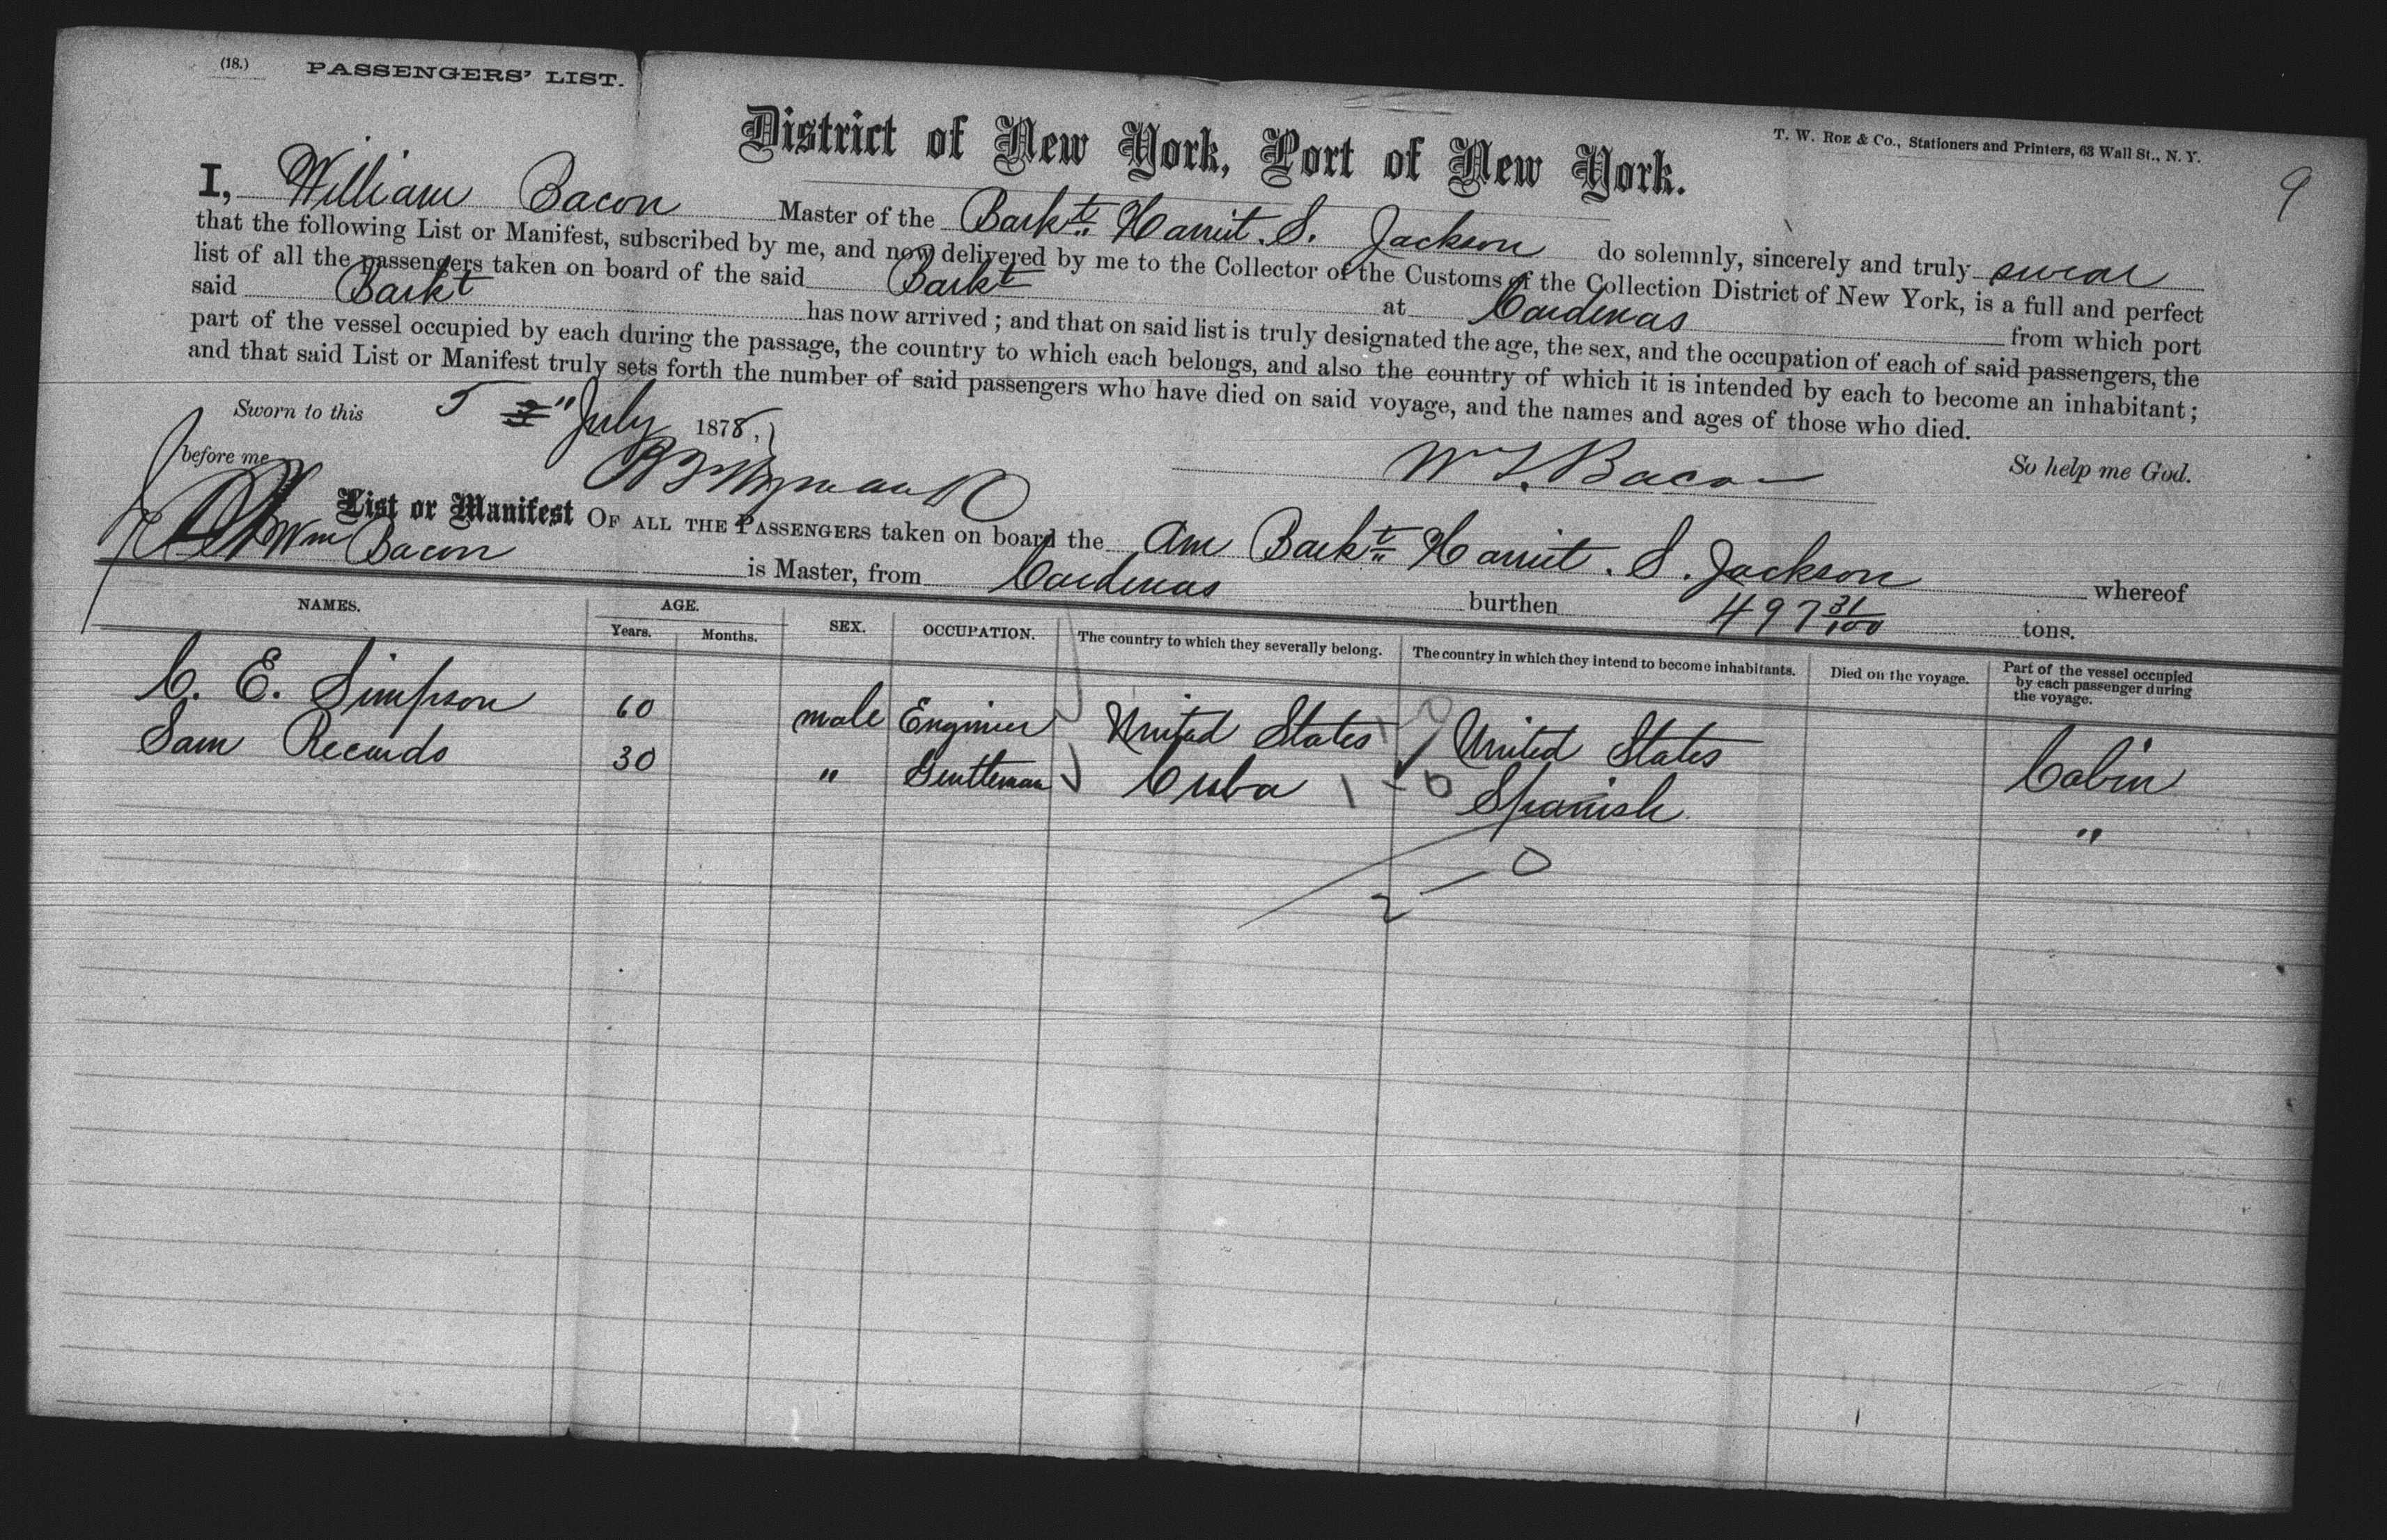 (18.) PASSENGERS' LIST.
T. W. Roe & Co., Stationers and Printers, 63 Wall St., N. Y.
9
District of New York, Port of New York.
I, William Bacon Master of the Barkt. Harriet. S. Jackson do solemnly, sincerely and truly swear
that the following List or Manifest, subscribed by me, and now delivered by me to the Collector of the Customs of the Collection District of New York, is a full and perfect
list of all the passengers taken on board of the said Barkt at Cardenas from which port
said Barkt has now arrived; and that on said list is truly designated the age, the sex, and the occupation of each of said passengers, the
part of the vessel occupied by each during the passage, the country to which each belongs, and also the country of which it is intended by each to become an inhabitant;
and that said List or Manifest truly sets forth the number of said passengers who have died on said voyage, and the names and ages of those who died.
Sworn to this 5 July 1878,
So help me God.
before me
Wm L. Bacon
List or Manifest OF ALL THE PASSENGERS taken on board the Am Barkt. Harriet. S. Jackson whereof
Wm Bacon is Master, from Cardenas burthen 497 31/100 tons.
NAMES. AGE. Years. Months. SEX. OCCUPATION. The country to which they severally belong. The country in which they intend to become inhabitants. Died on the voyage. Part of the vessel occupied by each passenger during the voyage.
C. E. Simpson 60 male Engineer United States 1 0 United States Cabin
Sam Records 30 " Gentleman Cuba 1 - 0 Spanish "
2 - 0